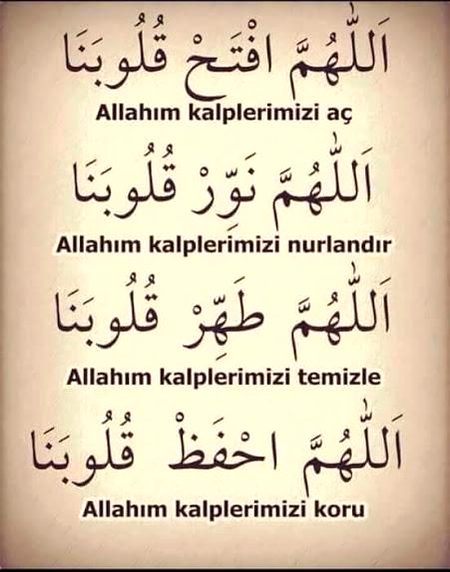 اَللّٰهُمَّ افْتَحْ قُلُوبَنَا
Allahım kalplerimizi aç
اَللّٰهُمَّ نَوِّرْ قُلُوبَنَا
Allahım kalplerimizi nurlandır
اَللّٰهُمَّ طَهِّرْ قُلُوبَنَا
Allahım kalplerimizi temizle
اَللّٰهُمَّ احْفَظْ قُلُوبَنَا
Allahım kalplerimizi koru